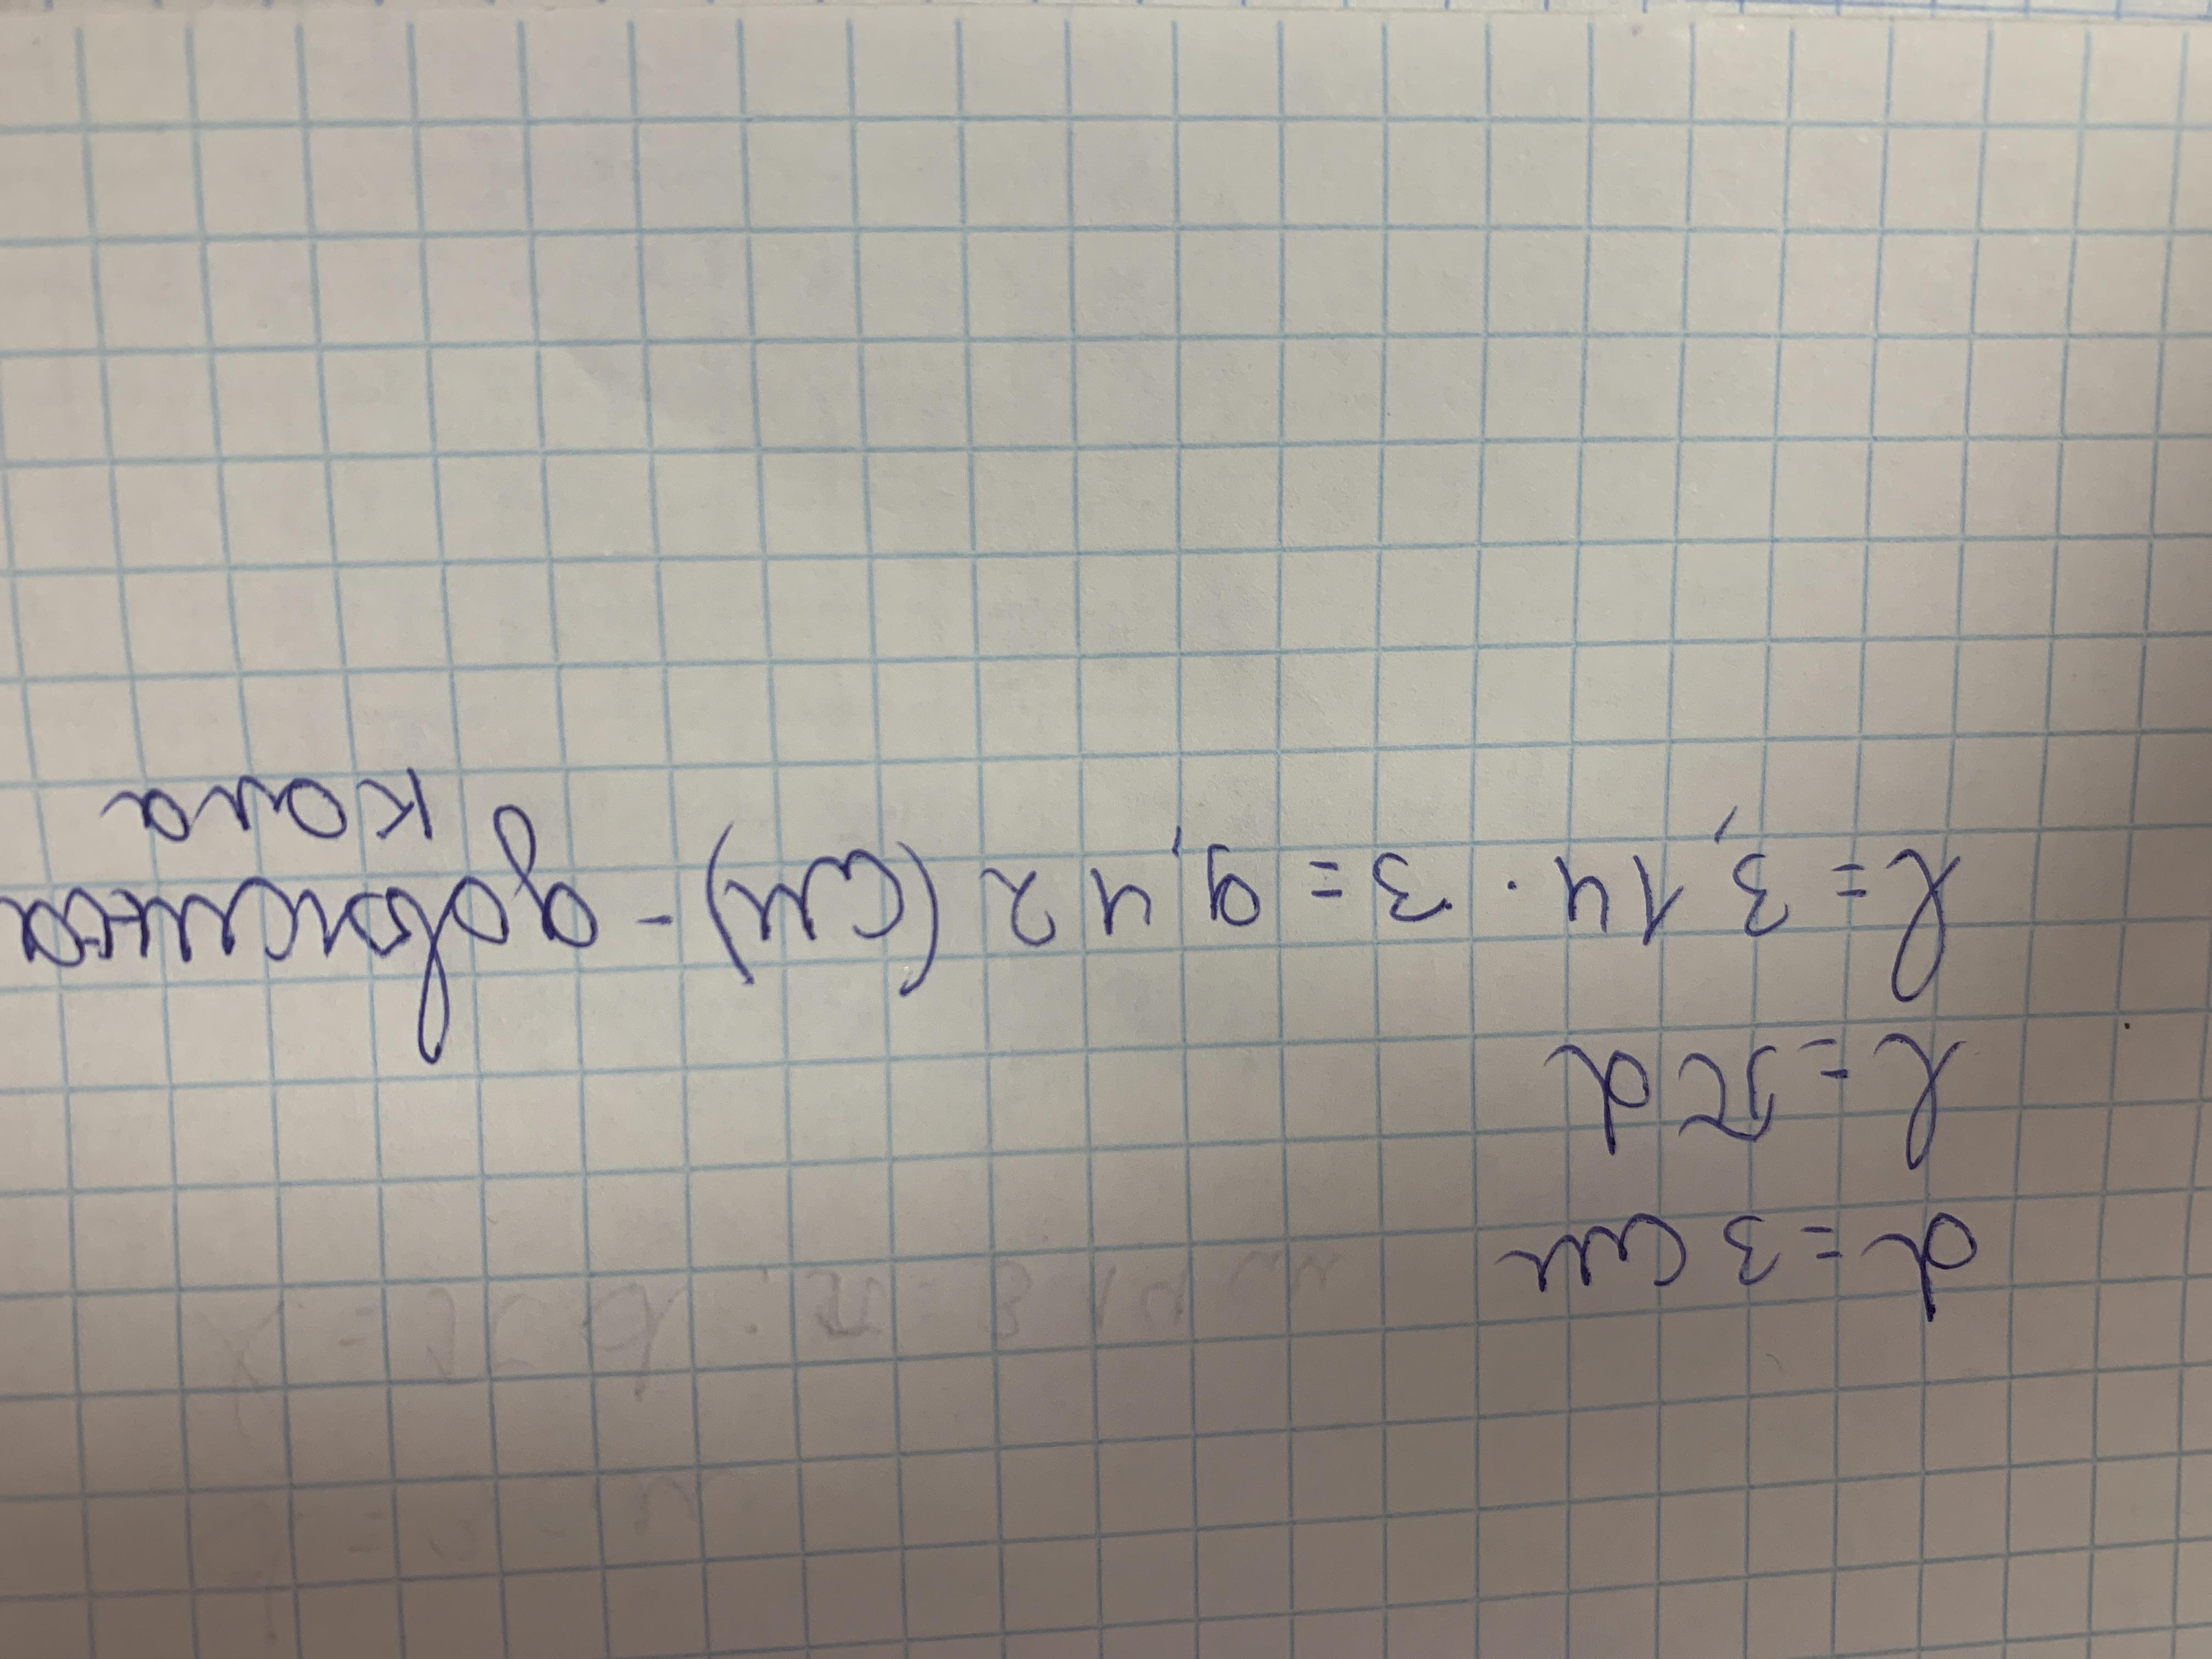 d = 3 см
l = πd
l = 3,14 · 3 = 9,42 (см) - довжина
кола